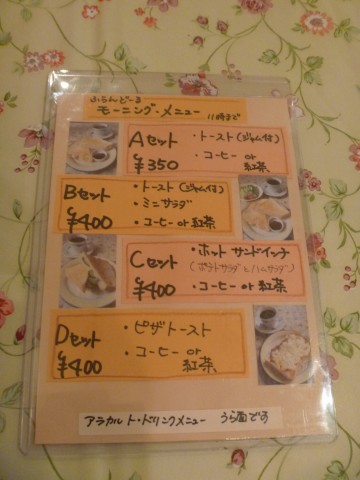 ふらんどーる
モーニング・メニュー 11時まで
Aセット
¥350
・トースト(ジャム付)
・コーヒー or
紅茶
Bセット
¥400
・トースト(ジャム付)
・ミニサラダ
・コーヒー or 紅茶
Cセット
¥400
・ホットサンドイッチ
(ポテトサラダとハムサラダ)
・コーヒー or 紅茶
Dセット
¥400
・ピザトースト
・コーヒー or
紅茶
アラカルト・ドリンクメニュー うら面です